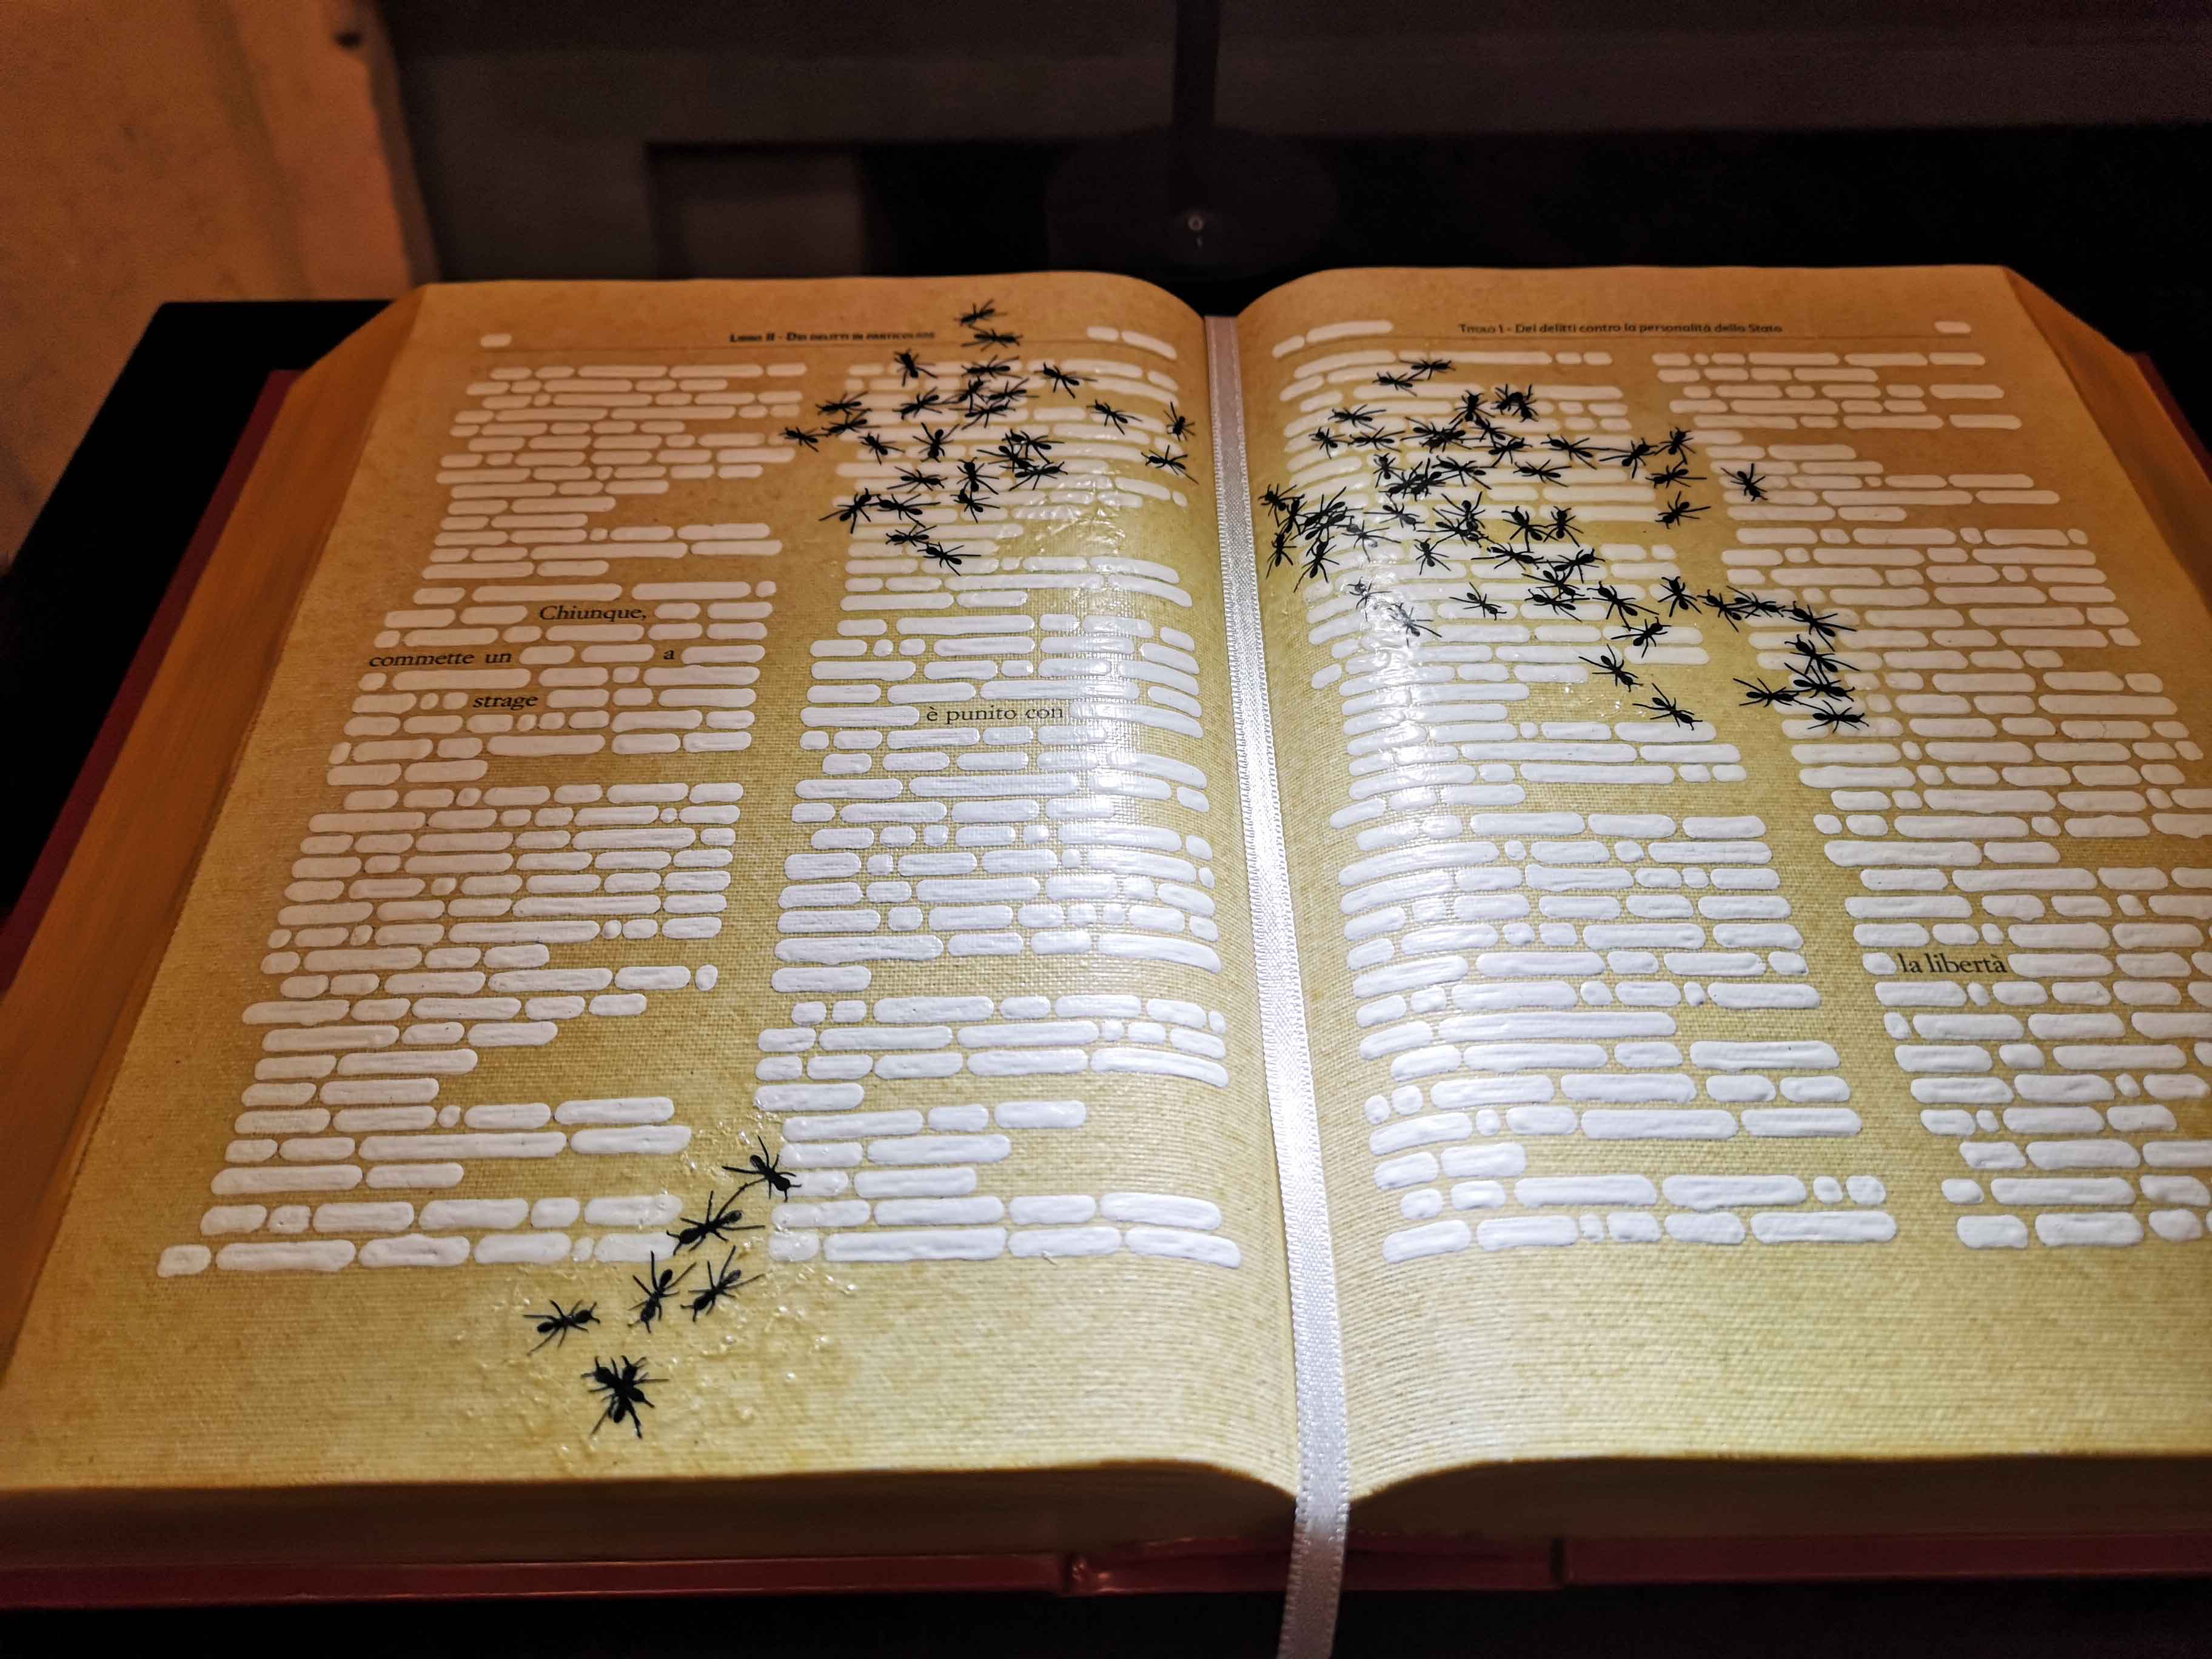 Libro II - Dei delitti in particolare
Chiunque,
commette un a
strage
è punito con
Titolo I - Dei delitti contro la personalità dello Stato
la libertà